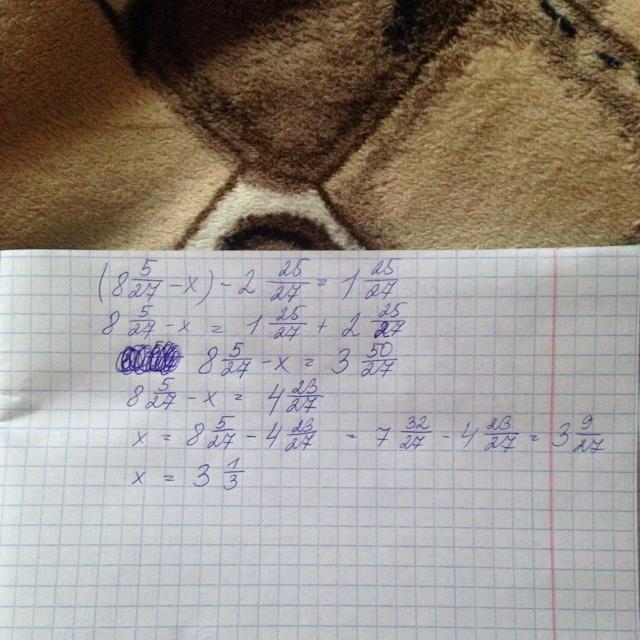 (8 5/27 - x) - 2 25/27 = 1 25/27
8 5/27 - x = 1 25/27 + 2 25/27
8 5/27 - x = 3 50/27
8 5/27 - x = 4 23/27
x = 8 5/27 - 4 23/27 = 7 32/27 - 4 23/27 = 3 9/27
x = 3 1/3